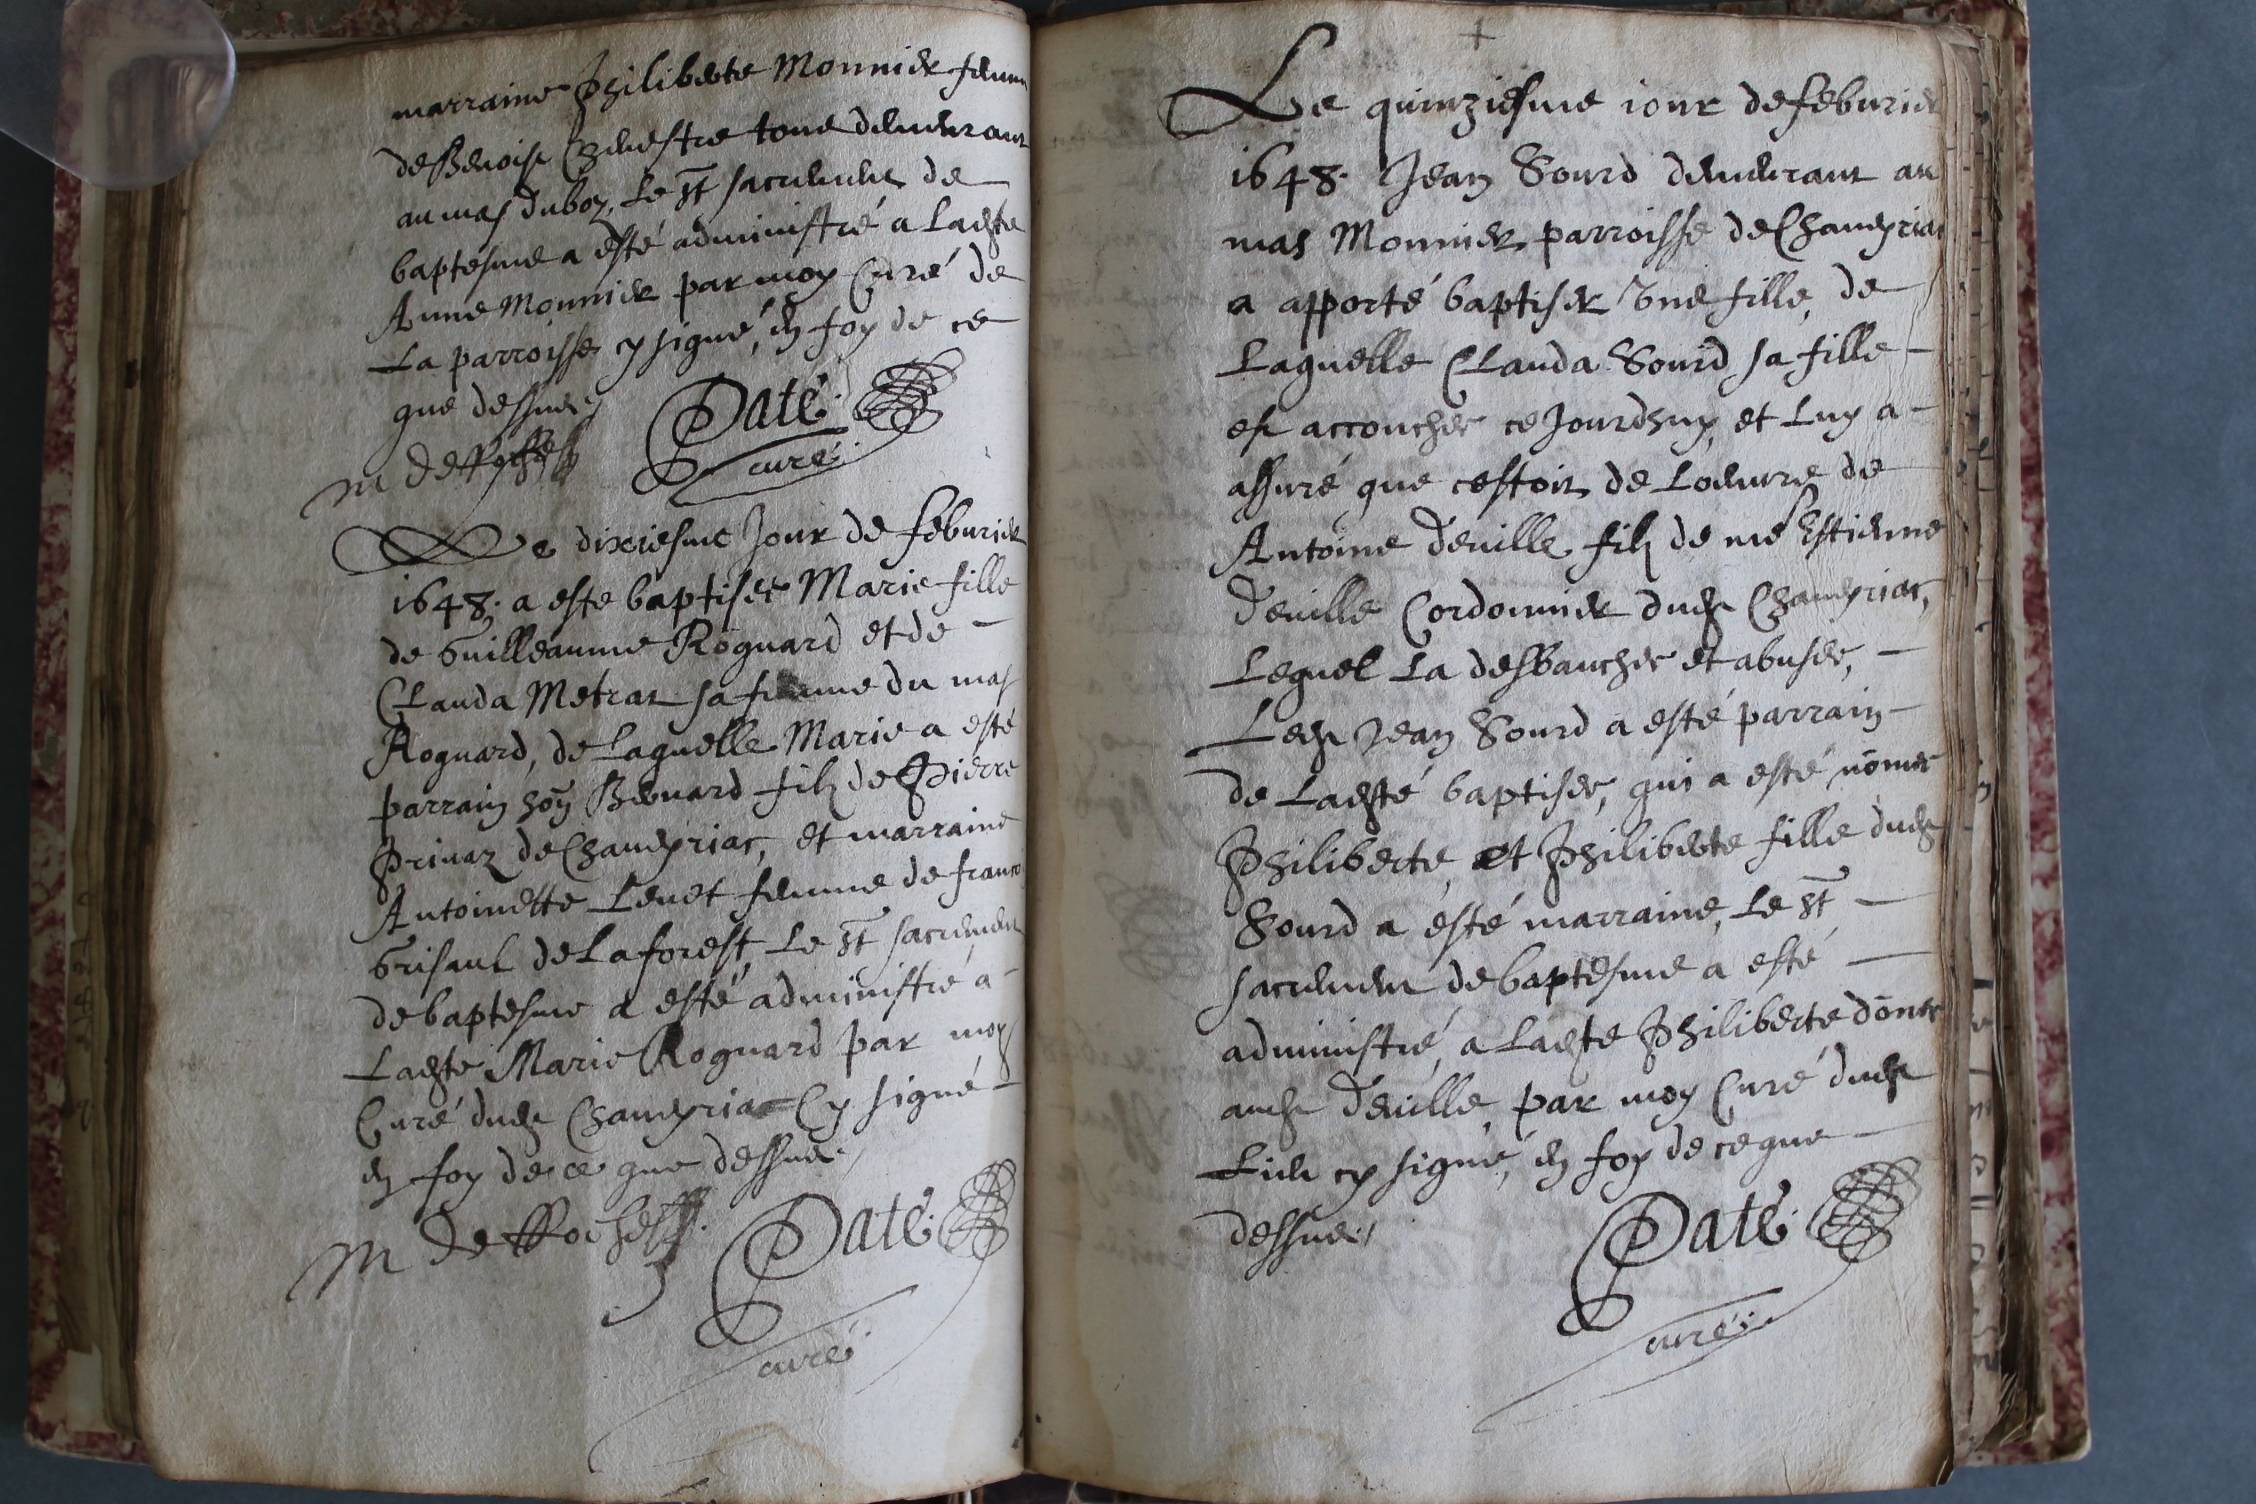 marraine Philiberte Monnier femme
de Benoist Chevestre tous demeurant
au mas du boz, Le St sacrement de
baptesme a esté administré a Ladte
Anne Monnier par moy Curé de
La parroisse cy signé, en foy de ce
que dessus
Paté
M curé
Le dixiesme Jour de feburier
1648. a este baptisee Marie fille
de Guilleaume Roguard et de
Clauda Metrat sa femme du mas
Roguard, de Laquelle Marie a esté
parrain hon Benard filz de Pierre
Privaz de Chaveyriac, et marraine
Antoinette Levet femme de
Grisaul de Laforest, Le St sacrement
de baptesme a esté administré a
Ladte Marie Roguard par moy
Curé dudt Chaveyriac Cy signé
en foy de ce que dessus
M Paté
curé
+
Le quinziesme iour de feburier
1648. Jean Sourd demeurant au
mas Monnier parroisse de Chaveyriac
a apporté baptiser Une fille, de
Laquelle Clauda Sourd sa fille
est accouchee ce Jourdhuy, et Luy a
assuré que cestoit de Loeuure de
Antoine deuille filz de me Estienne
deuille Cordonnier dudt Chaveyriac,
Lequel La desbauchee et abusee,
Ledt Jean Sourd a esté parrain
de Ladté baptisee, qui a esté nōmee
Philiberte, et Philiberte fille dudt
Sourd a esté marraine, Le St
sacrement de baptesme a esté
administré, a Ladte Philiberte dōnee
audt deuille par moy Curé dudt
Lieu cy signé, en foy de ce que
dessus
Paté
curé